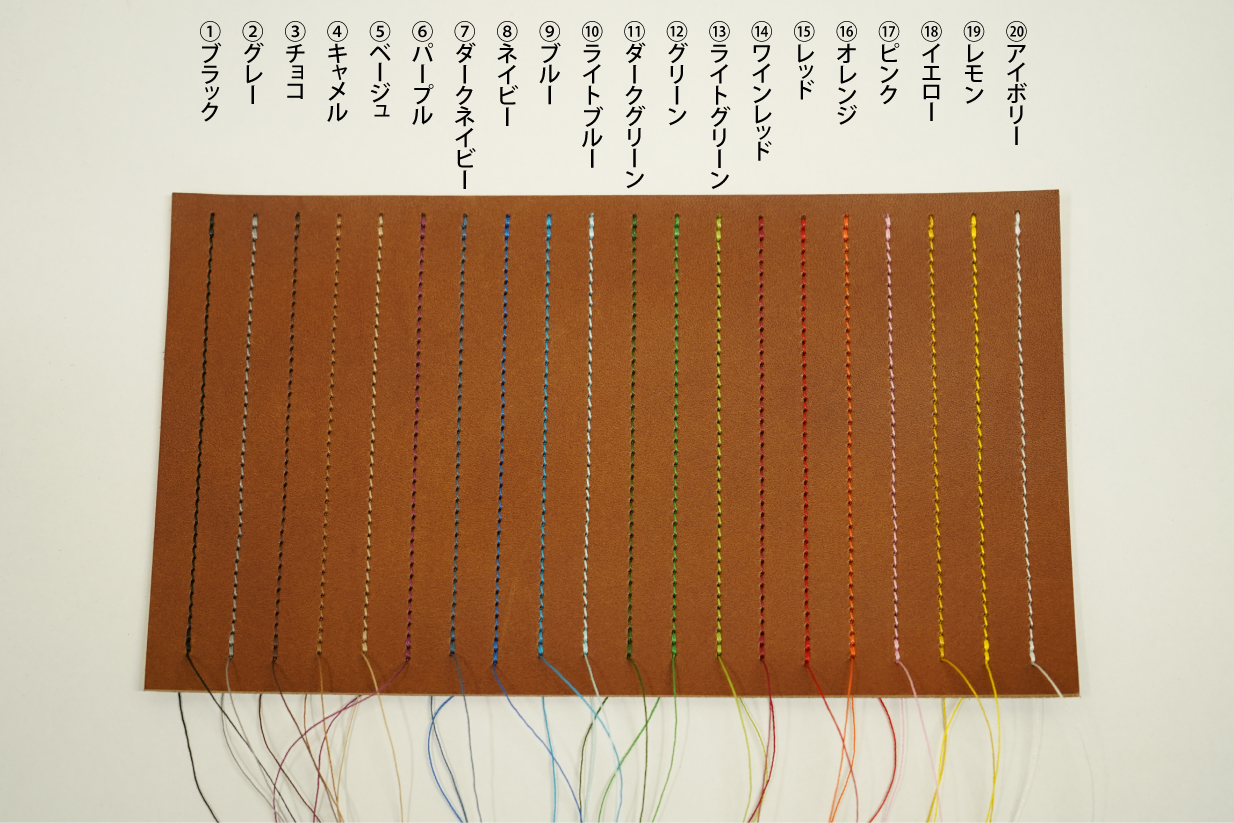 ①ブラック
②グレー
③チョコ
④キャメル
⑤ベージュ
⑥パープル
⑦ダークネイビー
⑧ネイビー
⑨ブルー
⑩ライトブルー
⑪ダークグリーン
⑫グリーン
⑬ライトグリーン
⑭ワインレッド
⑮レッド
⑯オレンジ
⑰ピンク
⑱イエロー
⑲レモン
⑳アイボリー